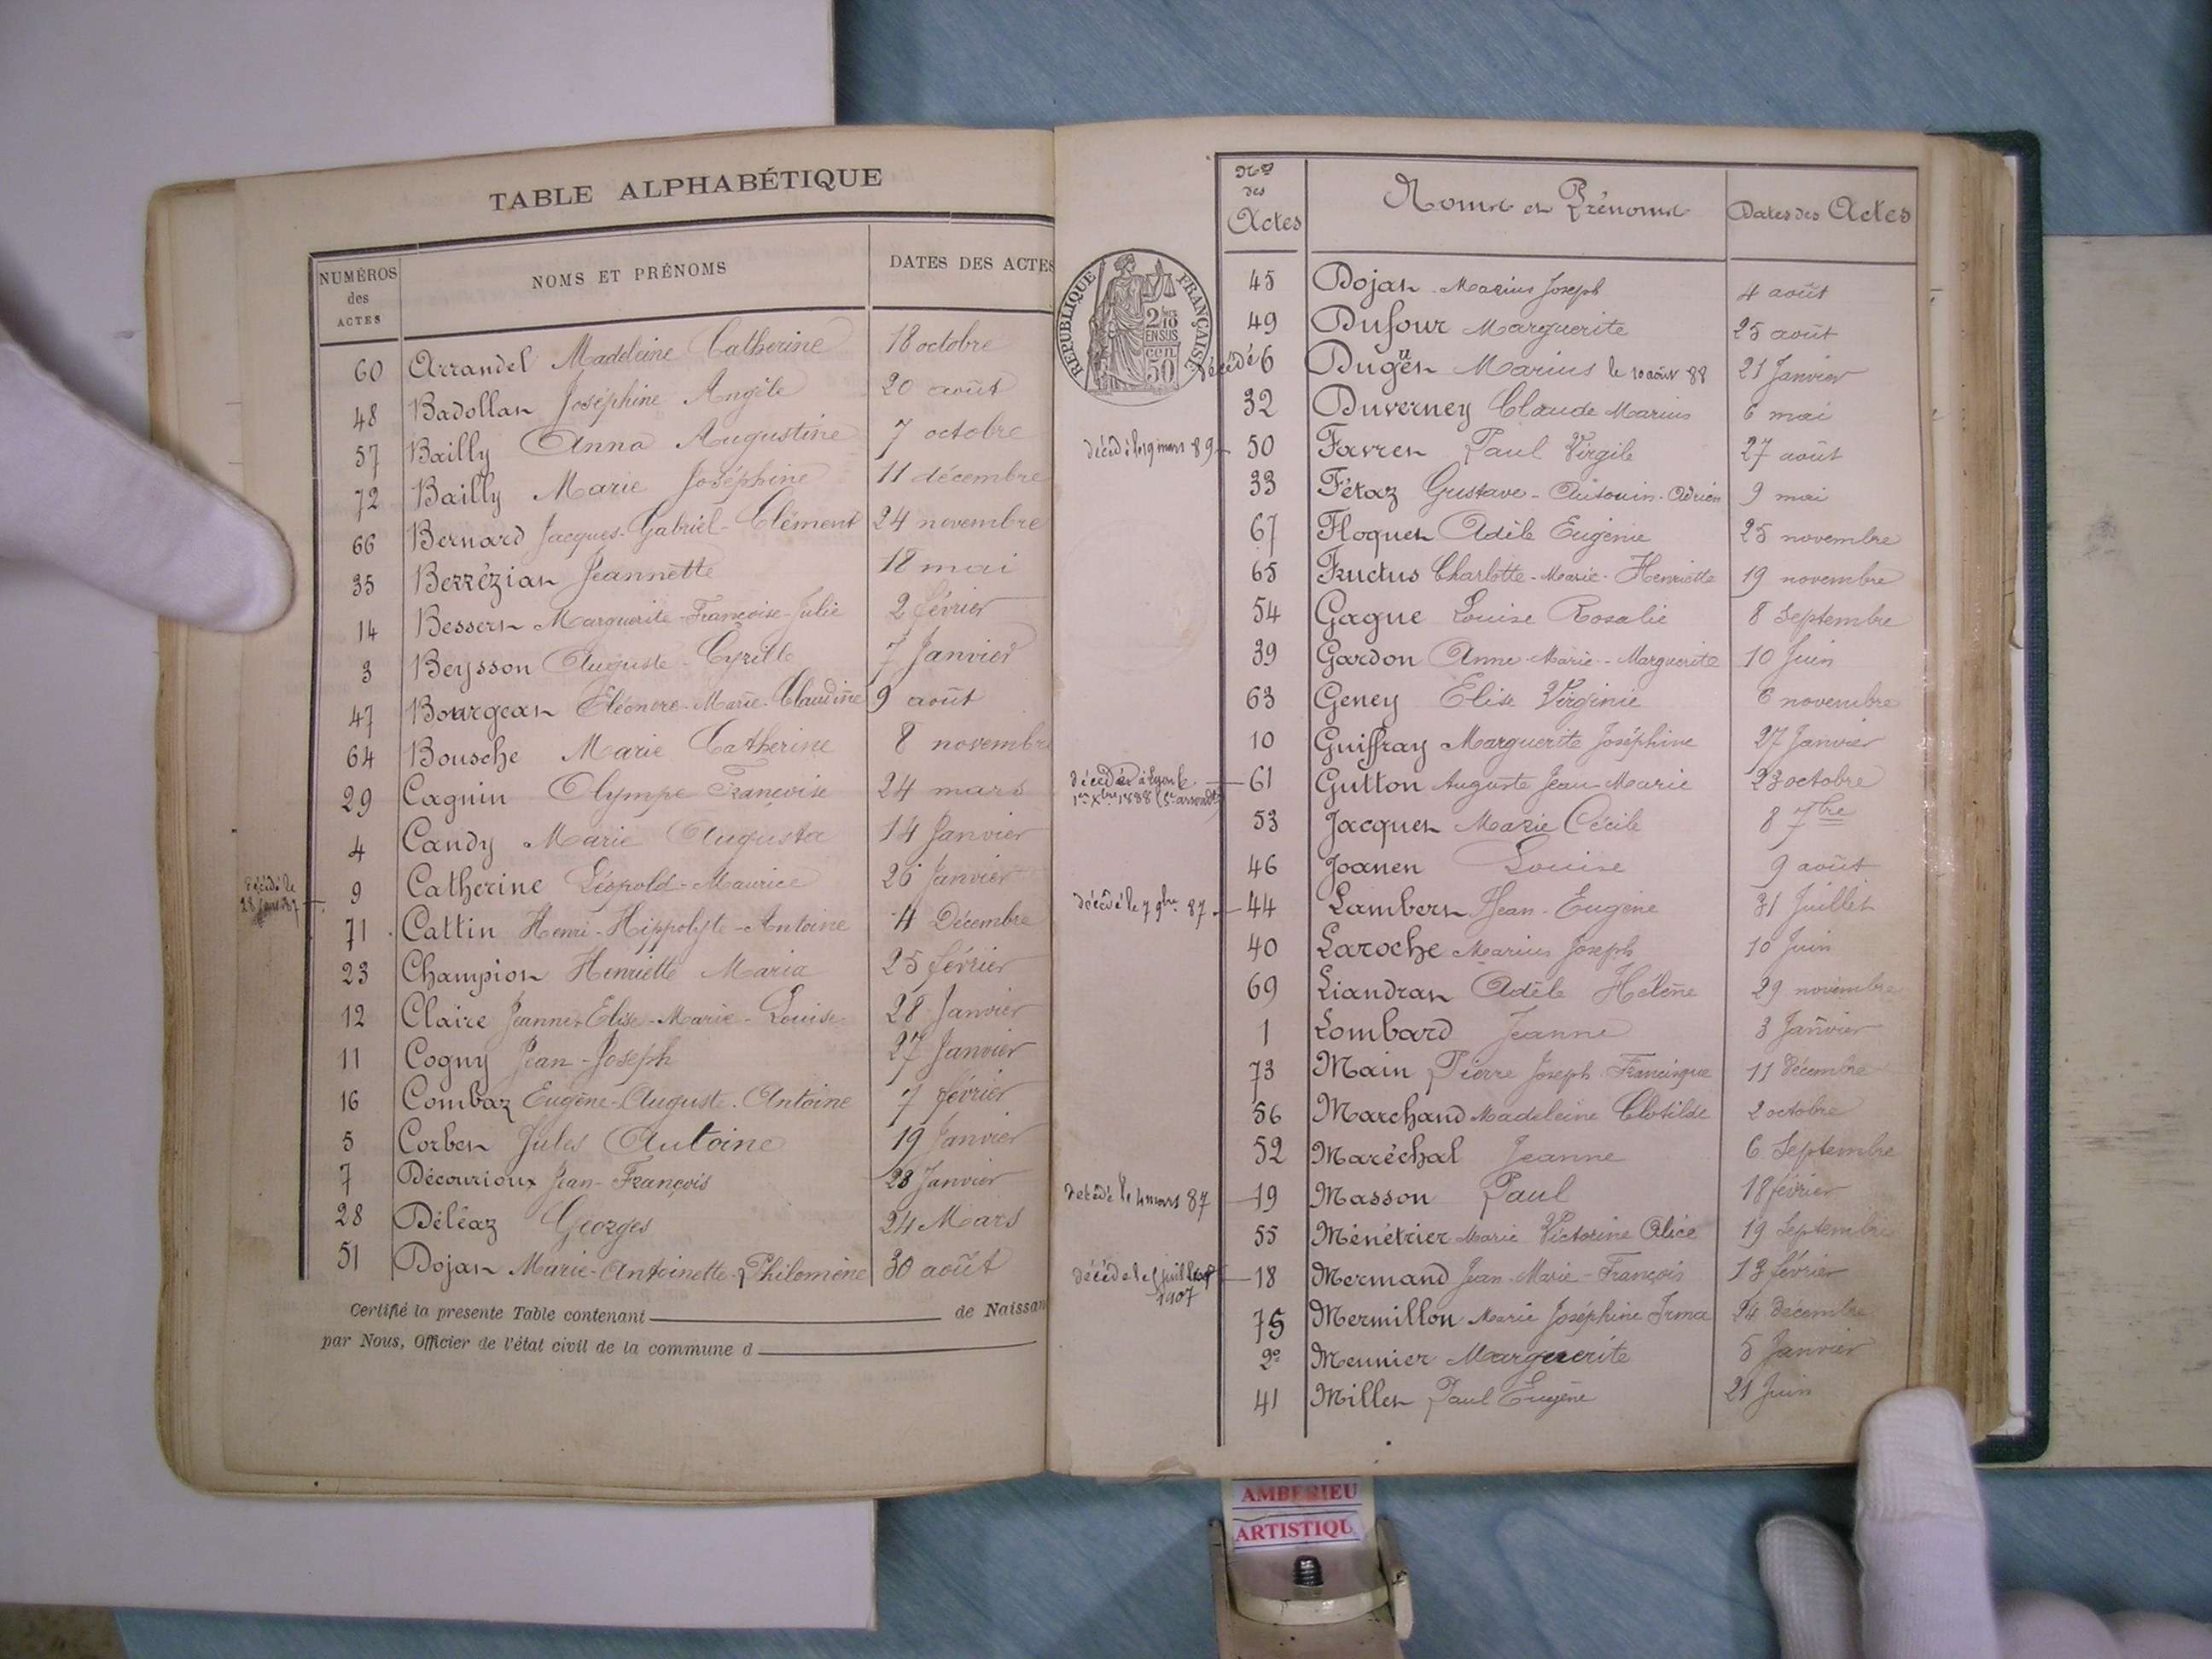 TABLE ALPHABÉTIQUE
NUMÉROS des ACTES NOMS ET PRÉNOMS DATES DES ACTES
60 Arrandel Madeleine Catherine 18 octobre
48 Badollat Joséphine Angèle 20 août
57 Bailly Anna Augustine 7 octobre
72 Bailly Marie Joséphine 11 décembre
66 Bernard Jacques-Gabriel-Clément 24 novembre
35 Berrézian Jeannette 18 mai
14 Bessert Marguerite-Françoise-Julie 2 février
3 Beysson Auguste-Cyrille 7 Janvier
47 Bourgeat Eléonore-Marie-Claudine 9 août
64 Bousche Marie Catherine 8 novembre
29 Cagnin Olympe Françoise 24 mars
4 Candy Marie Augusta 14 Janvier
décédé le
9 Catherine Léopold-Maurice 26 Janvier
71 Cattin Henri-Hippolyte-Antoine 4 Décembre
23 Champion Henriette Maria 25 février
12 Claire Jeanne-Elise-Marie-Louise 28 Janvier
11 Cogny Jean-Joseph 27 Janvier
16 Combaz Eugène-Auguste-Antoine 7 février
5 Corbet Jules Antoine 19 Janvier
7 Décourioux Jean-François 23 Janvier
28 Déléaz Georges 24 Mars
51 Dojat Marie-Antoinette-Philomène 30 août
Certifié la presente Table contenant de Naissan
par Nous, Officier de l'état civil de la commune d
Nos des Actes Noms et Prénoms Dates des Actes
RÉPUBLIQUE FRANÇAISE
2/10 EN SUS
50 cen
45 Dojat Marius Joseph 4 août
49 Dufour Marguerite 25 août
décédé 6 Duguet Marius le 10 août 88 21 Janvier
32 Duverney Claude Marius 6 mai
décédé le 19 mars 89 50 Favret Paul Virgile 27 août
33 Fétaz Gustave-Antonin-Adrien 9 mai
67 Floquet Adèle Eugénie 25 novembre
65 Fructus Charlotte-Marie-Henriette 19 novembre
54 Gagne Louise Rosalie 8 Septembre
39 Gardon Anne-Marie-Marguerite 10 Juin
63 Geney Elise Virginie 6 novembre
10 Guiffray Marguerite Joséphine 27 Janvier
décédé à Lyon le
1er Xbre 1888 (5e arrondt) 61 Gutton Auguste Jean-Marie 23 octobre
53 Jacquet Marie Cécile 8 7bre
46 Joanen Louise 9 août
décédé le 7 9bre 87 44 Lambert Jean-Eugène 31 Juillet
40 Laroche Marius Joseph 10 Juin
69 Liandrat Adèle Hélène 29 novembre
1 Lombard Jeanne 3 Janvier
73 Main Pierre Joseph Francisque 11 décembre
56 Marchand Madeleine Clotilde 2 octobre
52 Maréchal Jeanne 6 Septembre
décédé le 4 mars 87 19 Masson Paul 18 février
55 Ménétrier Marie Victorine Alice 19 Septembre
décédé le juillet
1907 18 Mermand Jean-Marie-François 13 février
75 Mermillon Marie Joséphine Irma 24 décembre
2 Meunier Marguerite 5 Janvier
41 Millet Paul Eugène 21 Juin
AMBERIEU
ARTISTIQU